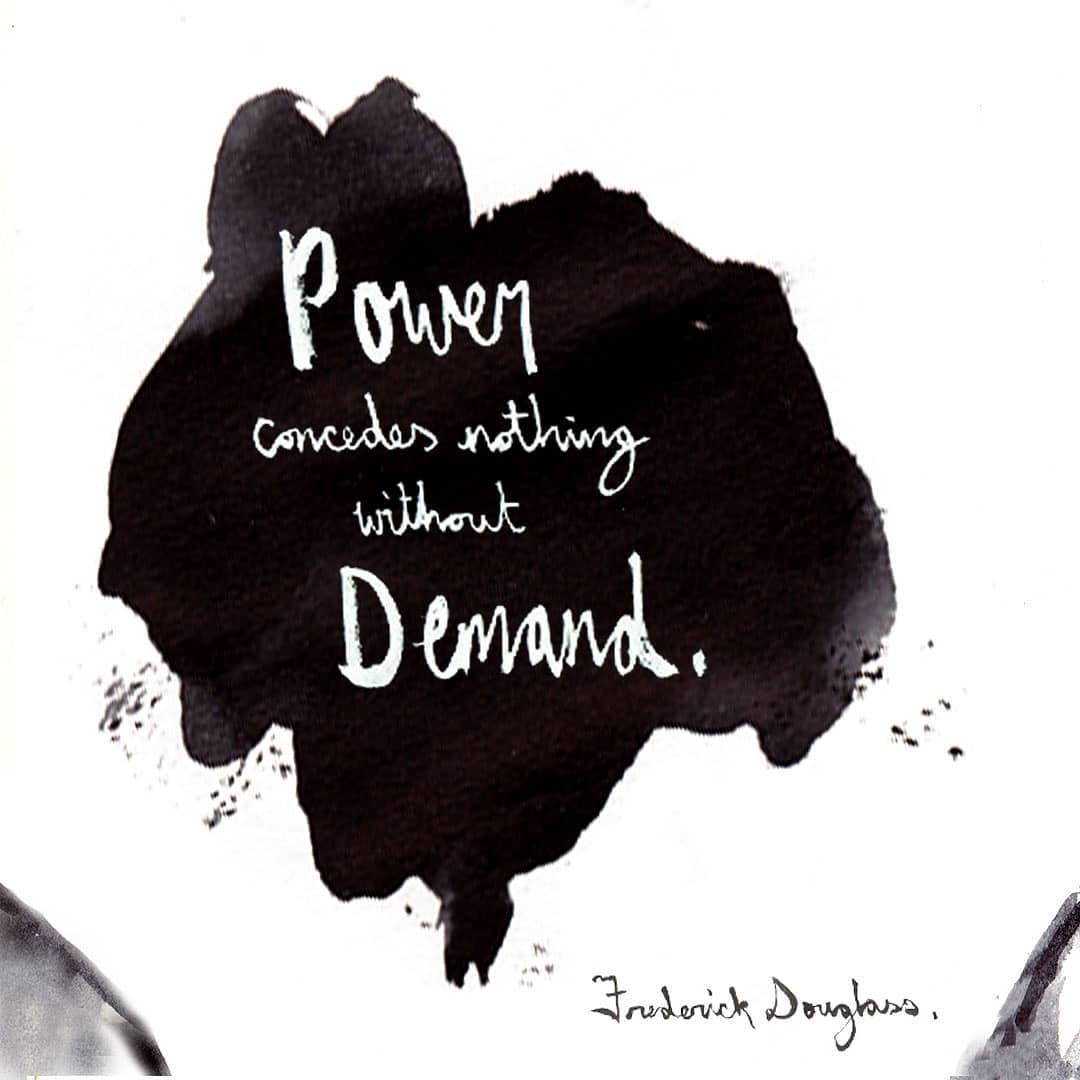 Power
concedes nothing
without
Demand.
Frederick Douglass.